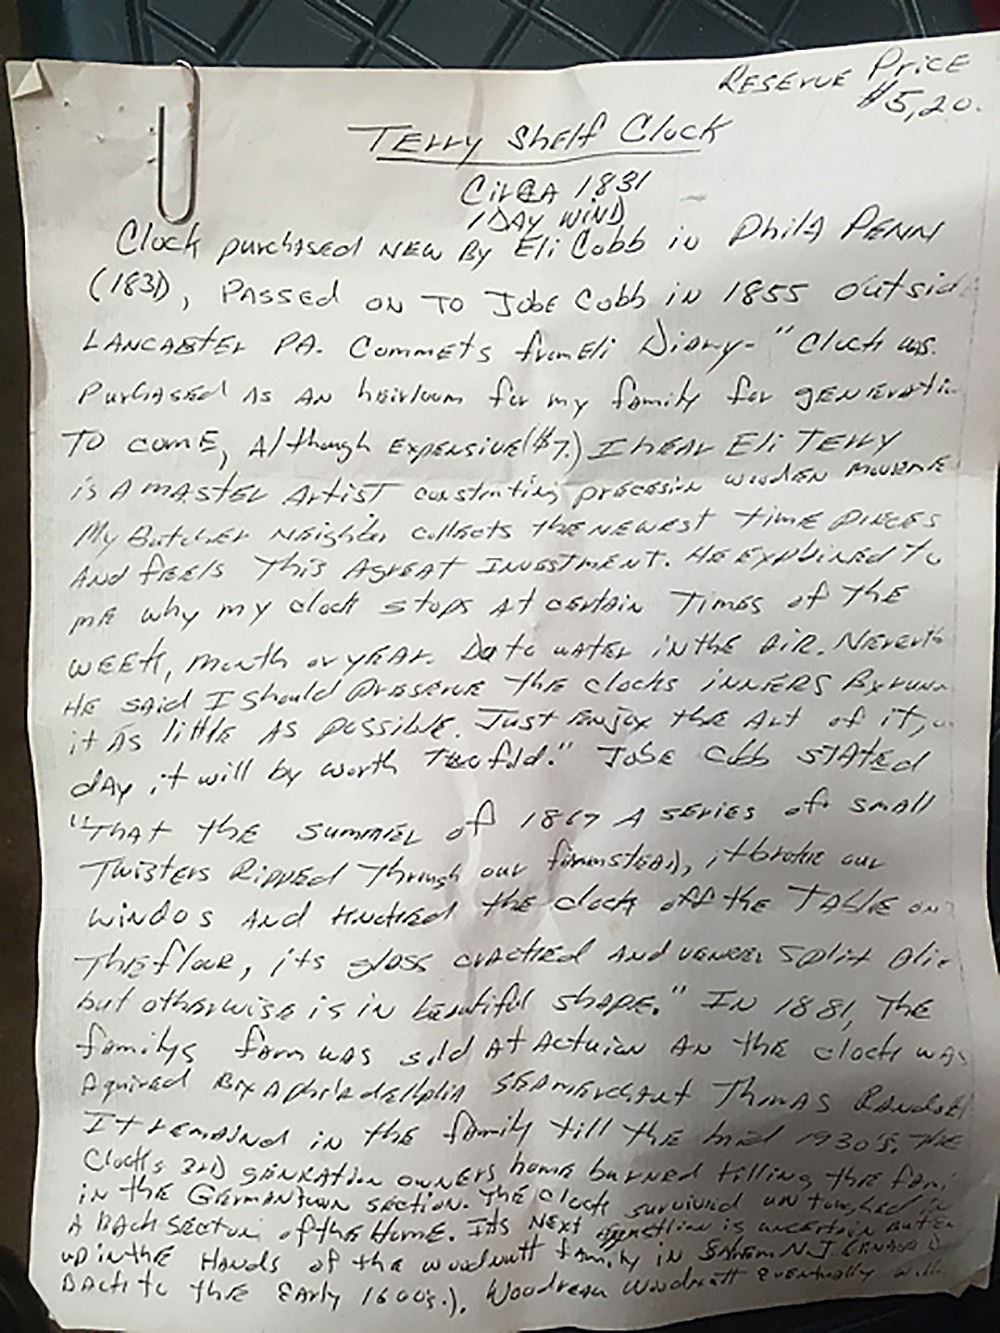 RESERVE Price
$5,20.
TERRY Shelf Clock
CIRCA 1831
1 DAY WIND
Clock purchased NEW By Eli Cobb in Phila PENN
(1831), PASSED ON TO Jobe Cobb in 1855 outsid
LANCASTER PA. Commets from Eli Diary- "Clock was
Purchased As AN heirloom for my family for generatio
TO comE, Although EXPENSIVE ($7.) I hear Eli TERRY
is A mASTER Artist constructing precesion wooden
My Butcher Neighbor collects the NEWEST TIME PIECES
AND feels This A great INVESTMENT. HE EXPLAINED to
me why my clock stops at certain Times of the
WEEK, month or yEAR. Du to water in the AIR. Neverth
HE said I should preserve the clocks inners By runn
it AS little AS possible. Just enjoy the Art of it,
dAy it will by worth Two fold." Jobe Cobb STATED
"THAT the summer of 1867 A series of small
Twisters Ripped Through our farmstead, it broke our
windos AND knocked the clock off the TABLE on
The floor, its glass cracked AND veneer split
but otherwise is in beautiful shape." IN 1881, The
familys farm was sold AT Actuion AN the clock was
Aquired By A philadellphia SEAmerchant Thomas
IT remained in the family till the mid 1930's. The
Clocks 3RD genration owners home burned killing the fam
in the Germantown section. The clock survived untouched in
A BACK section of the Home. Its NEXT is uncertain but
up in the Hands of the woodnutt family in Salem N.J.
BACK to the Early 1600's.), Woodnutt eventually